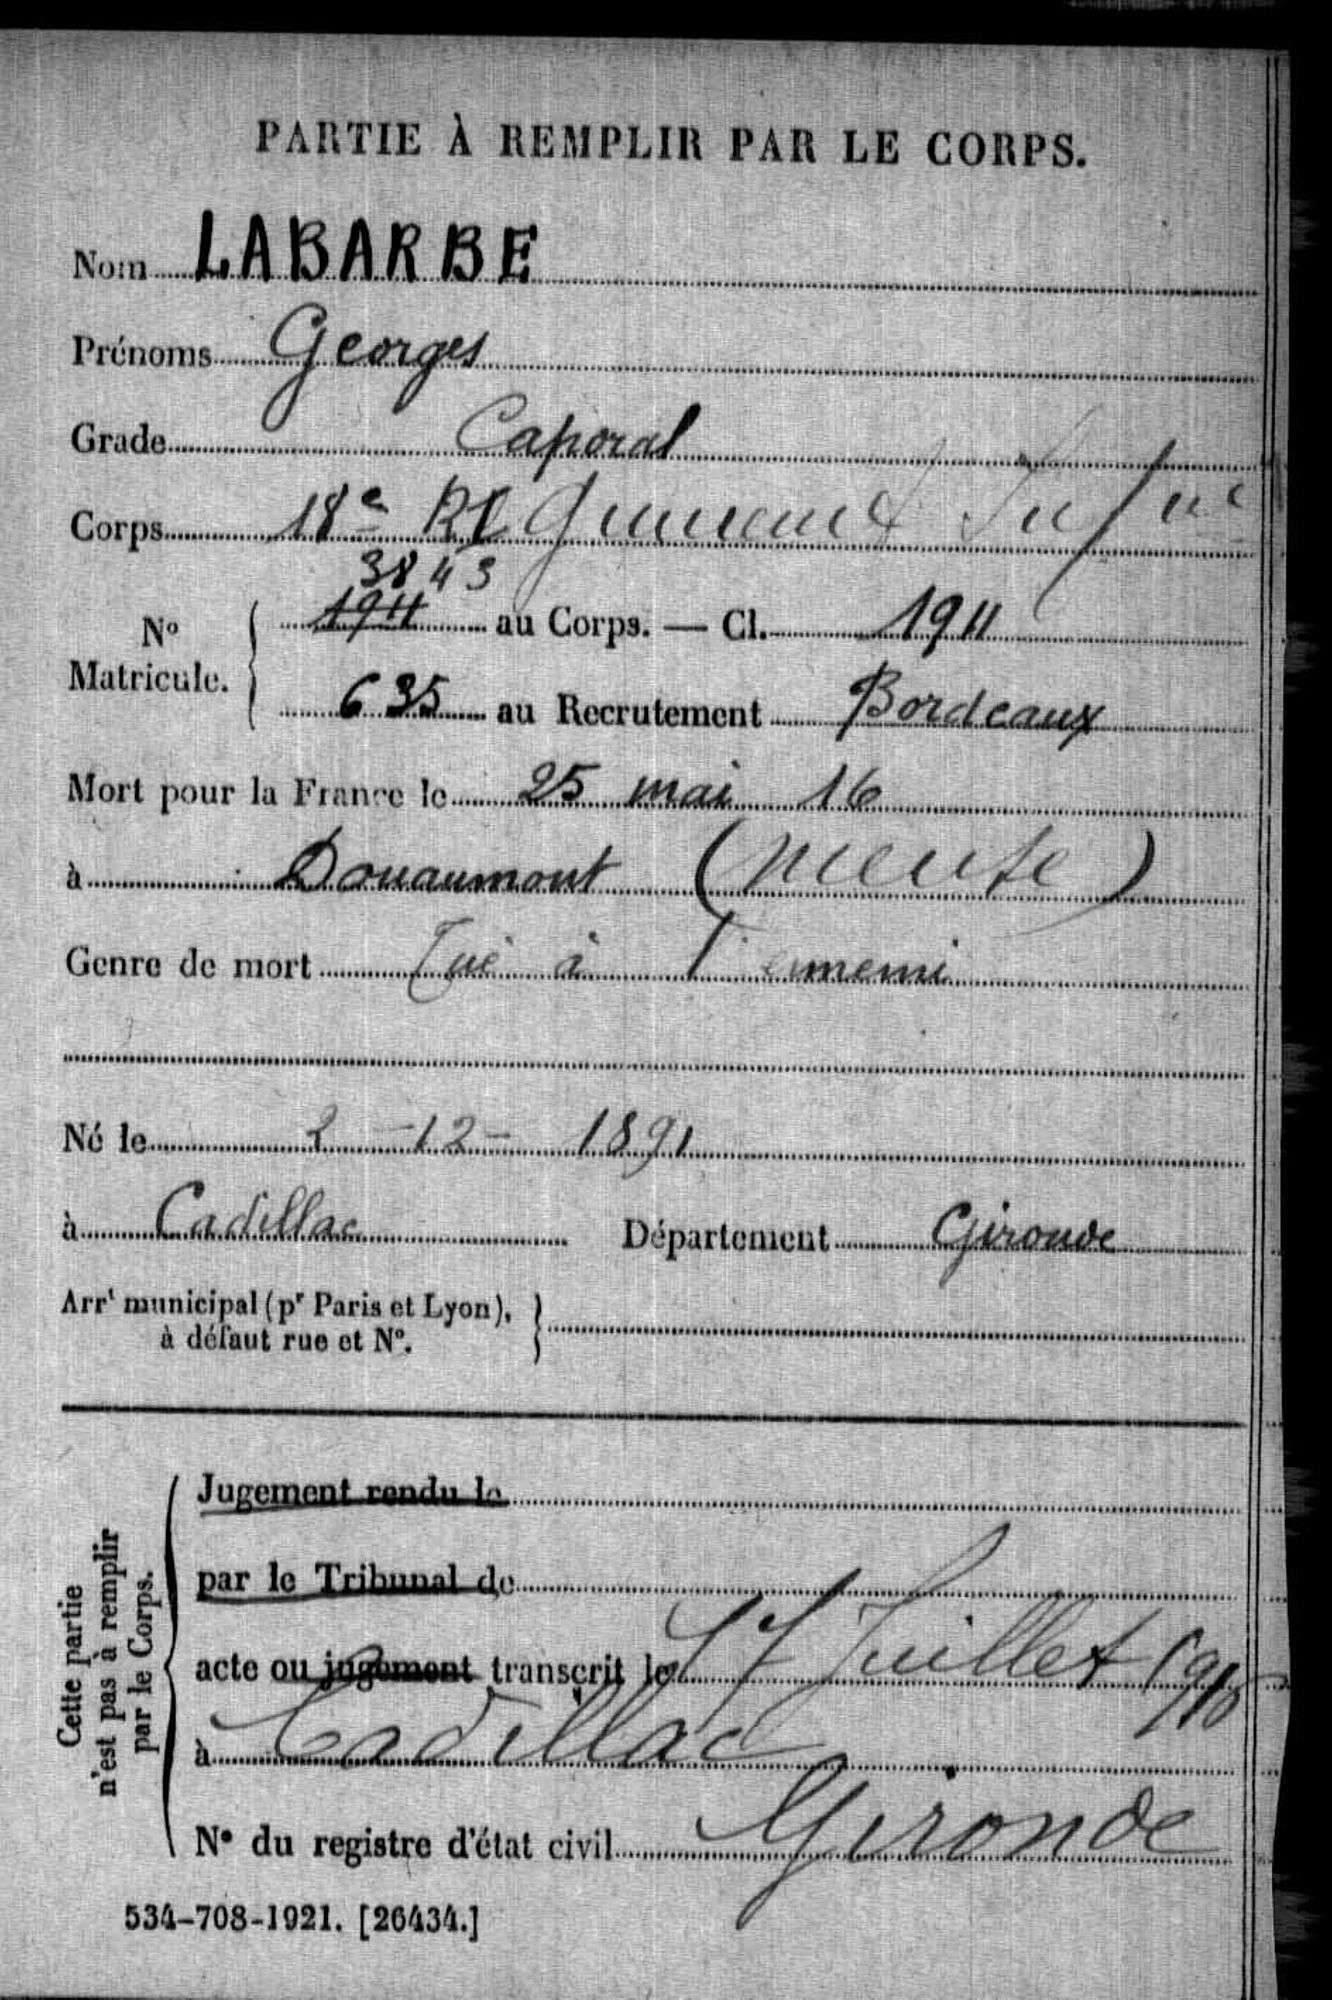 PARTIE À REMPLIR PAR LE CORPS.
Nom LABARBE
Prénoms Georges
Grade Caporal
Corps 18e RÉGiment d'Infie
3843
N° Matricule. 1911 au Corps. — Cl. 1911
635 au Recrutement Bordeaux
Mort pour la France le 25 mai 16
à Douaumont (Meuse)
Genre de mort Tué à l'ennemi
Né le 2 -12- 1891
à Cadillac Département Gironde
Arrt municipal (pr Paris et Lyon),
à défaut rue et N°.
Cette partie n'est pas à remplir par le Corps.
Jugement rendu le
par le Tribunal de
acte ou jugement transcrit le 17 Juillet 1916
à Cadillac
N° du registre d'état civil Gironde
534-708-1921. [26434.]